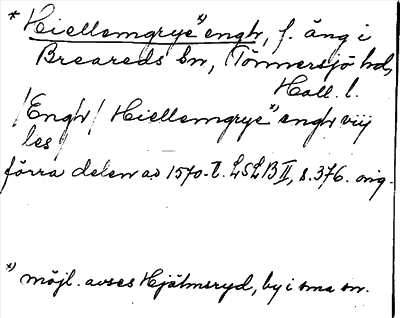 * Hiellemgrye*) engh, f. äng i
Breareds sn, Tönnersjö hd,
Hall. l.
/Engh/ Hiellemgrye*) engh viij
les/
förra delen av 1570-t. LSLB II, s. 376. orig.
*) möjl. avses Hjälmsryd, by i sma sn.